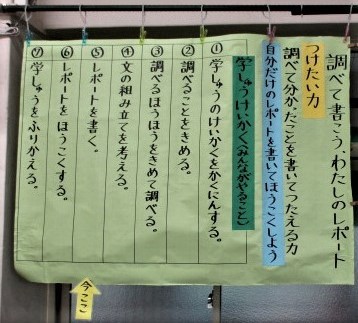 調べて書こう、わたしのレポート
つけたい力
調べて分かったことを書いてつたえる力
自分だけのレポートを書いてほうこくしよう
学しゅうけいかく(みんながやること)
① 学しゅうのけいかくをかくにんする。
② 調べることをきめる。
③ 調べるほうほうをきめて調べる。
④ 文の組み立てを考える。
⑤ レポートを書く。
⑥ レポートをほうこくする。
⑦ 学しゅうをふりかえる。
今ここ